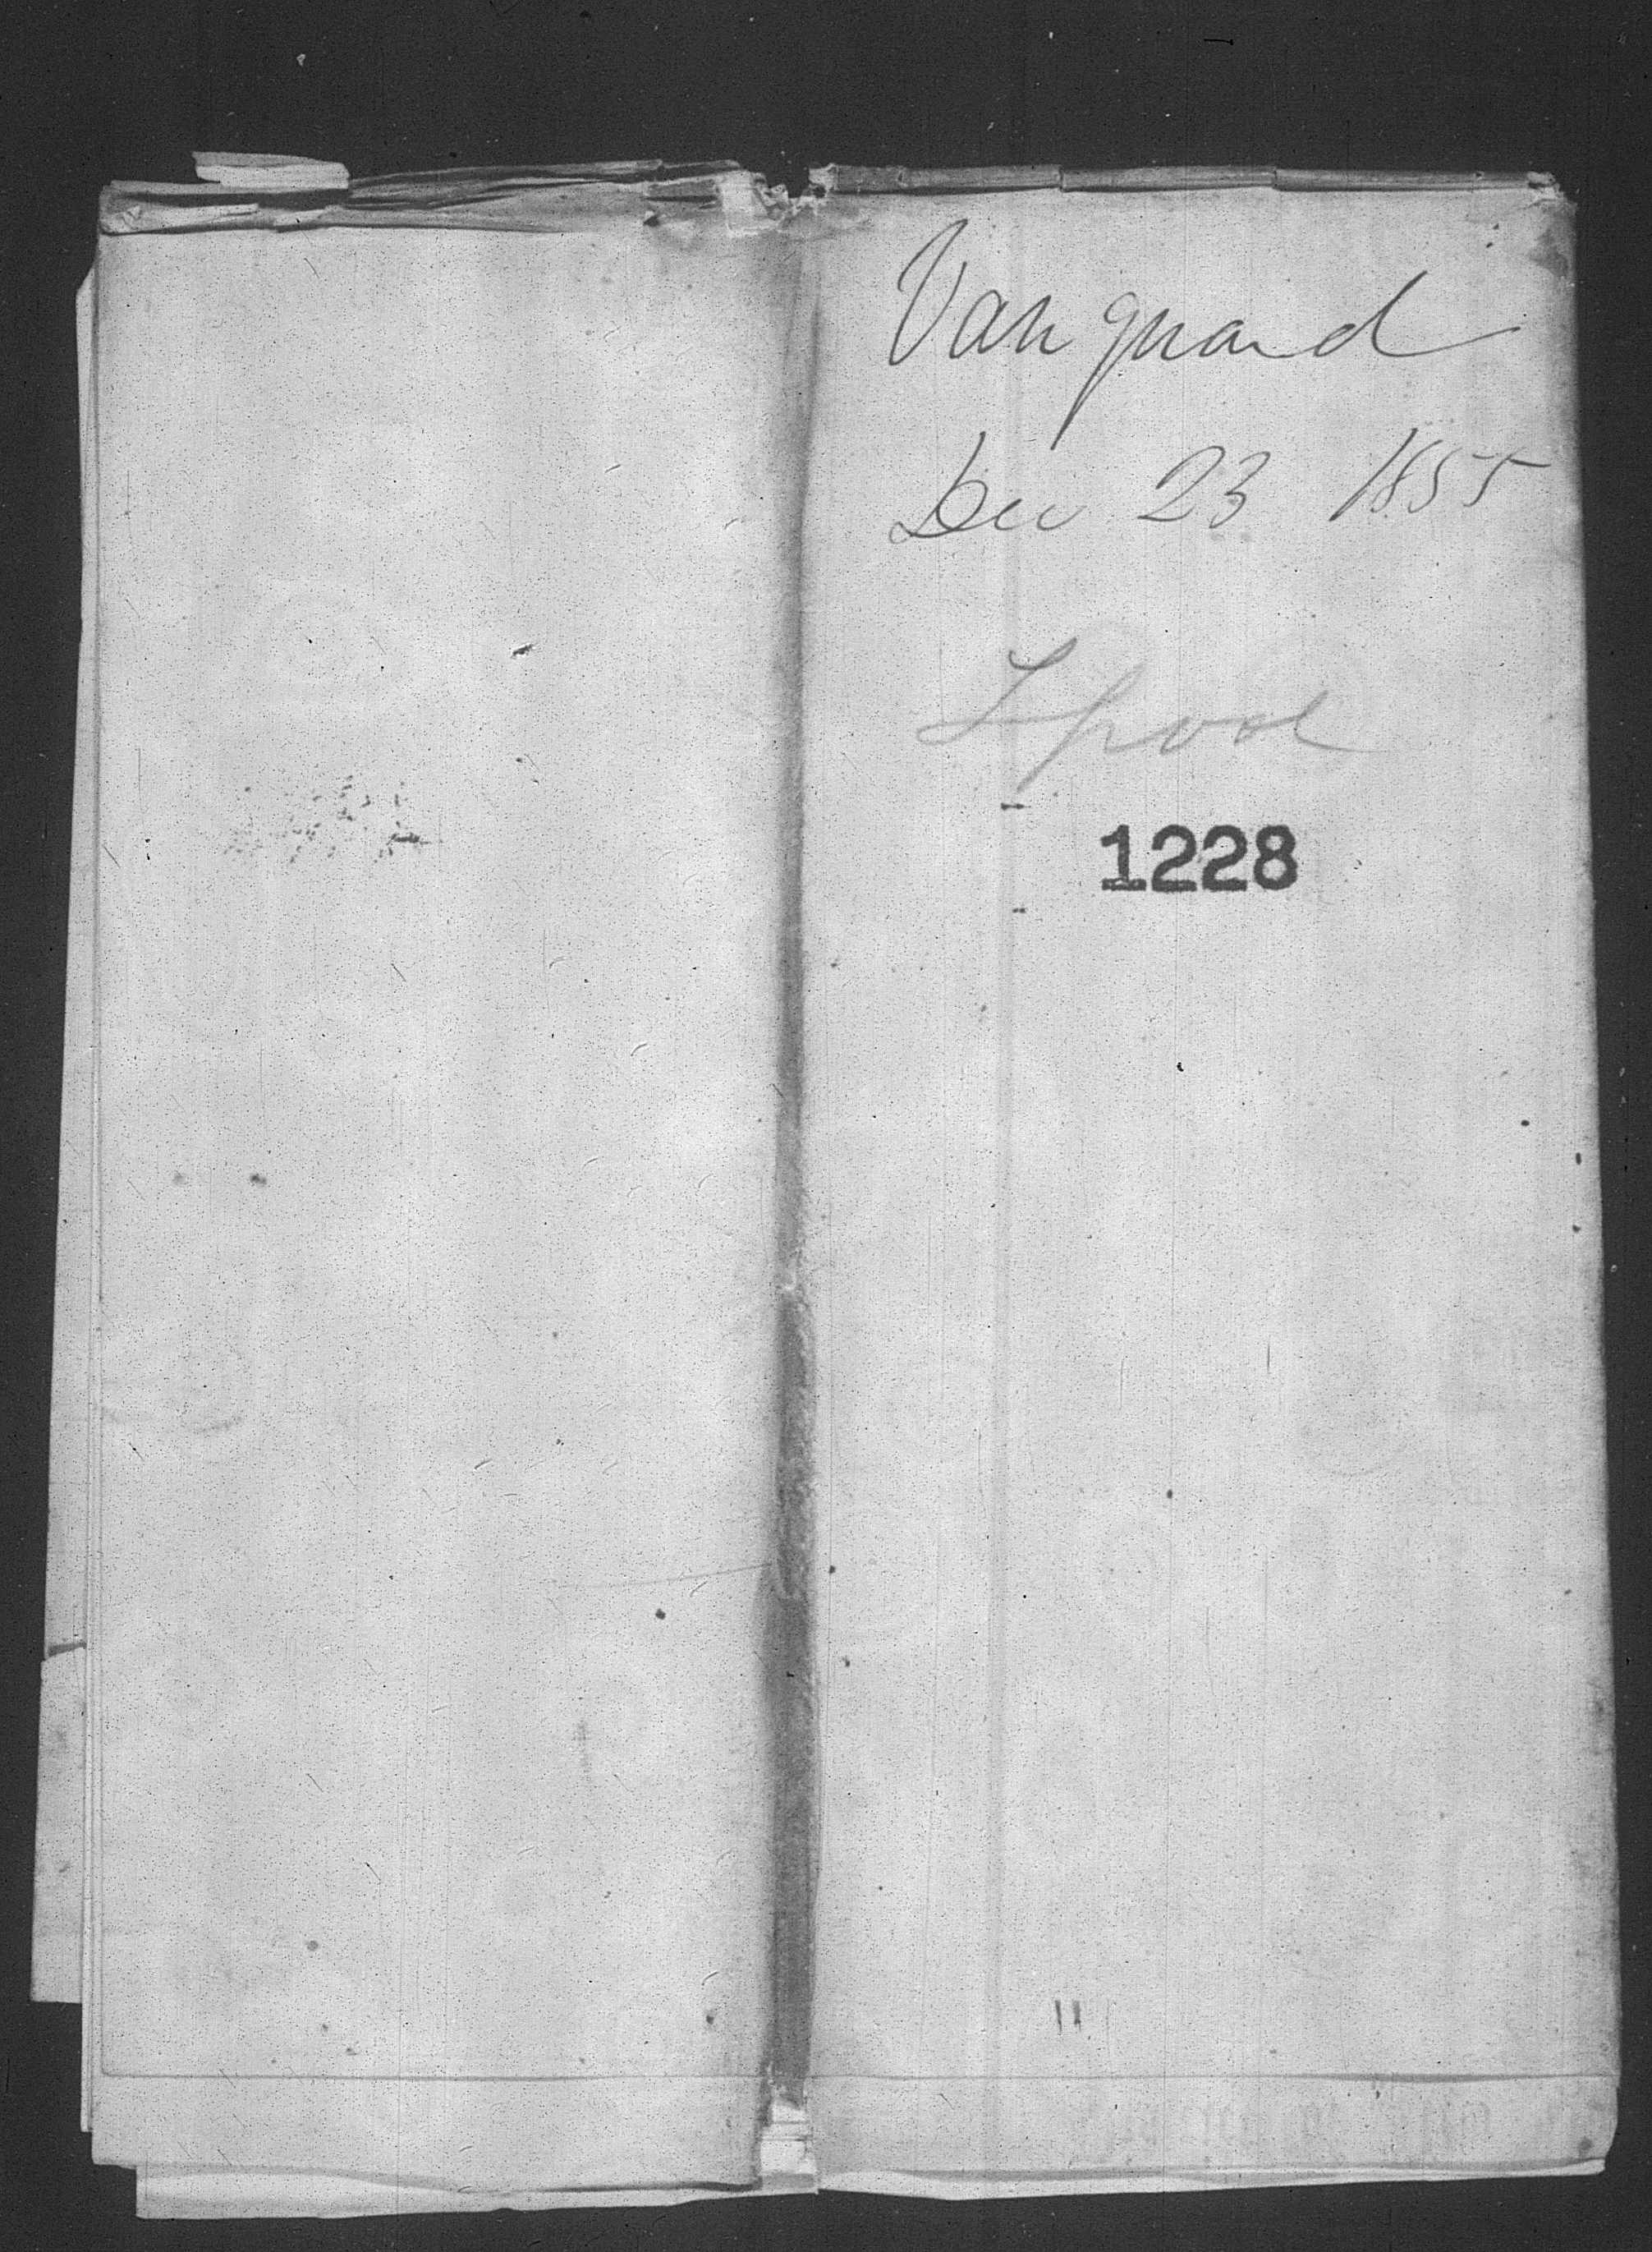 Vanguard
Dec 23 1855
Lpool
1228